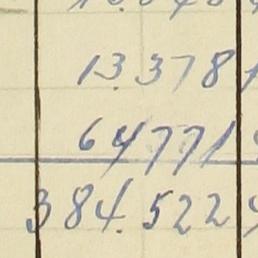 13.378
64771
384.522